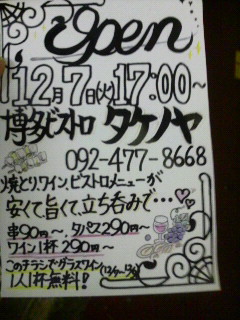 open
12月7日(火)17:00〜
博多ビストロ タケノヤ
092-477-8668
焼とり、ワイン、ビストロメニューが
安くて、旨くて、立ち呑みで・・・♡
串90円〜、タパス290円〜
ワイン1杯 290円〜
このチラシでグラスワイン
1人1杯無料!